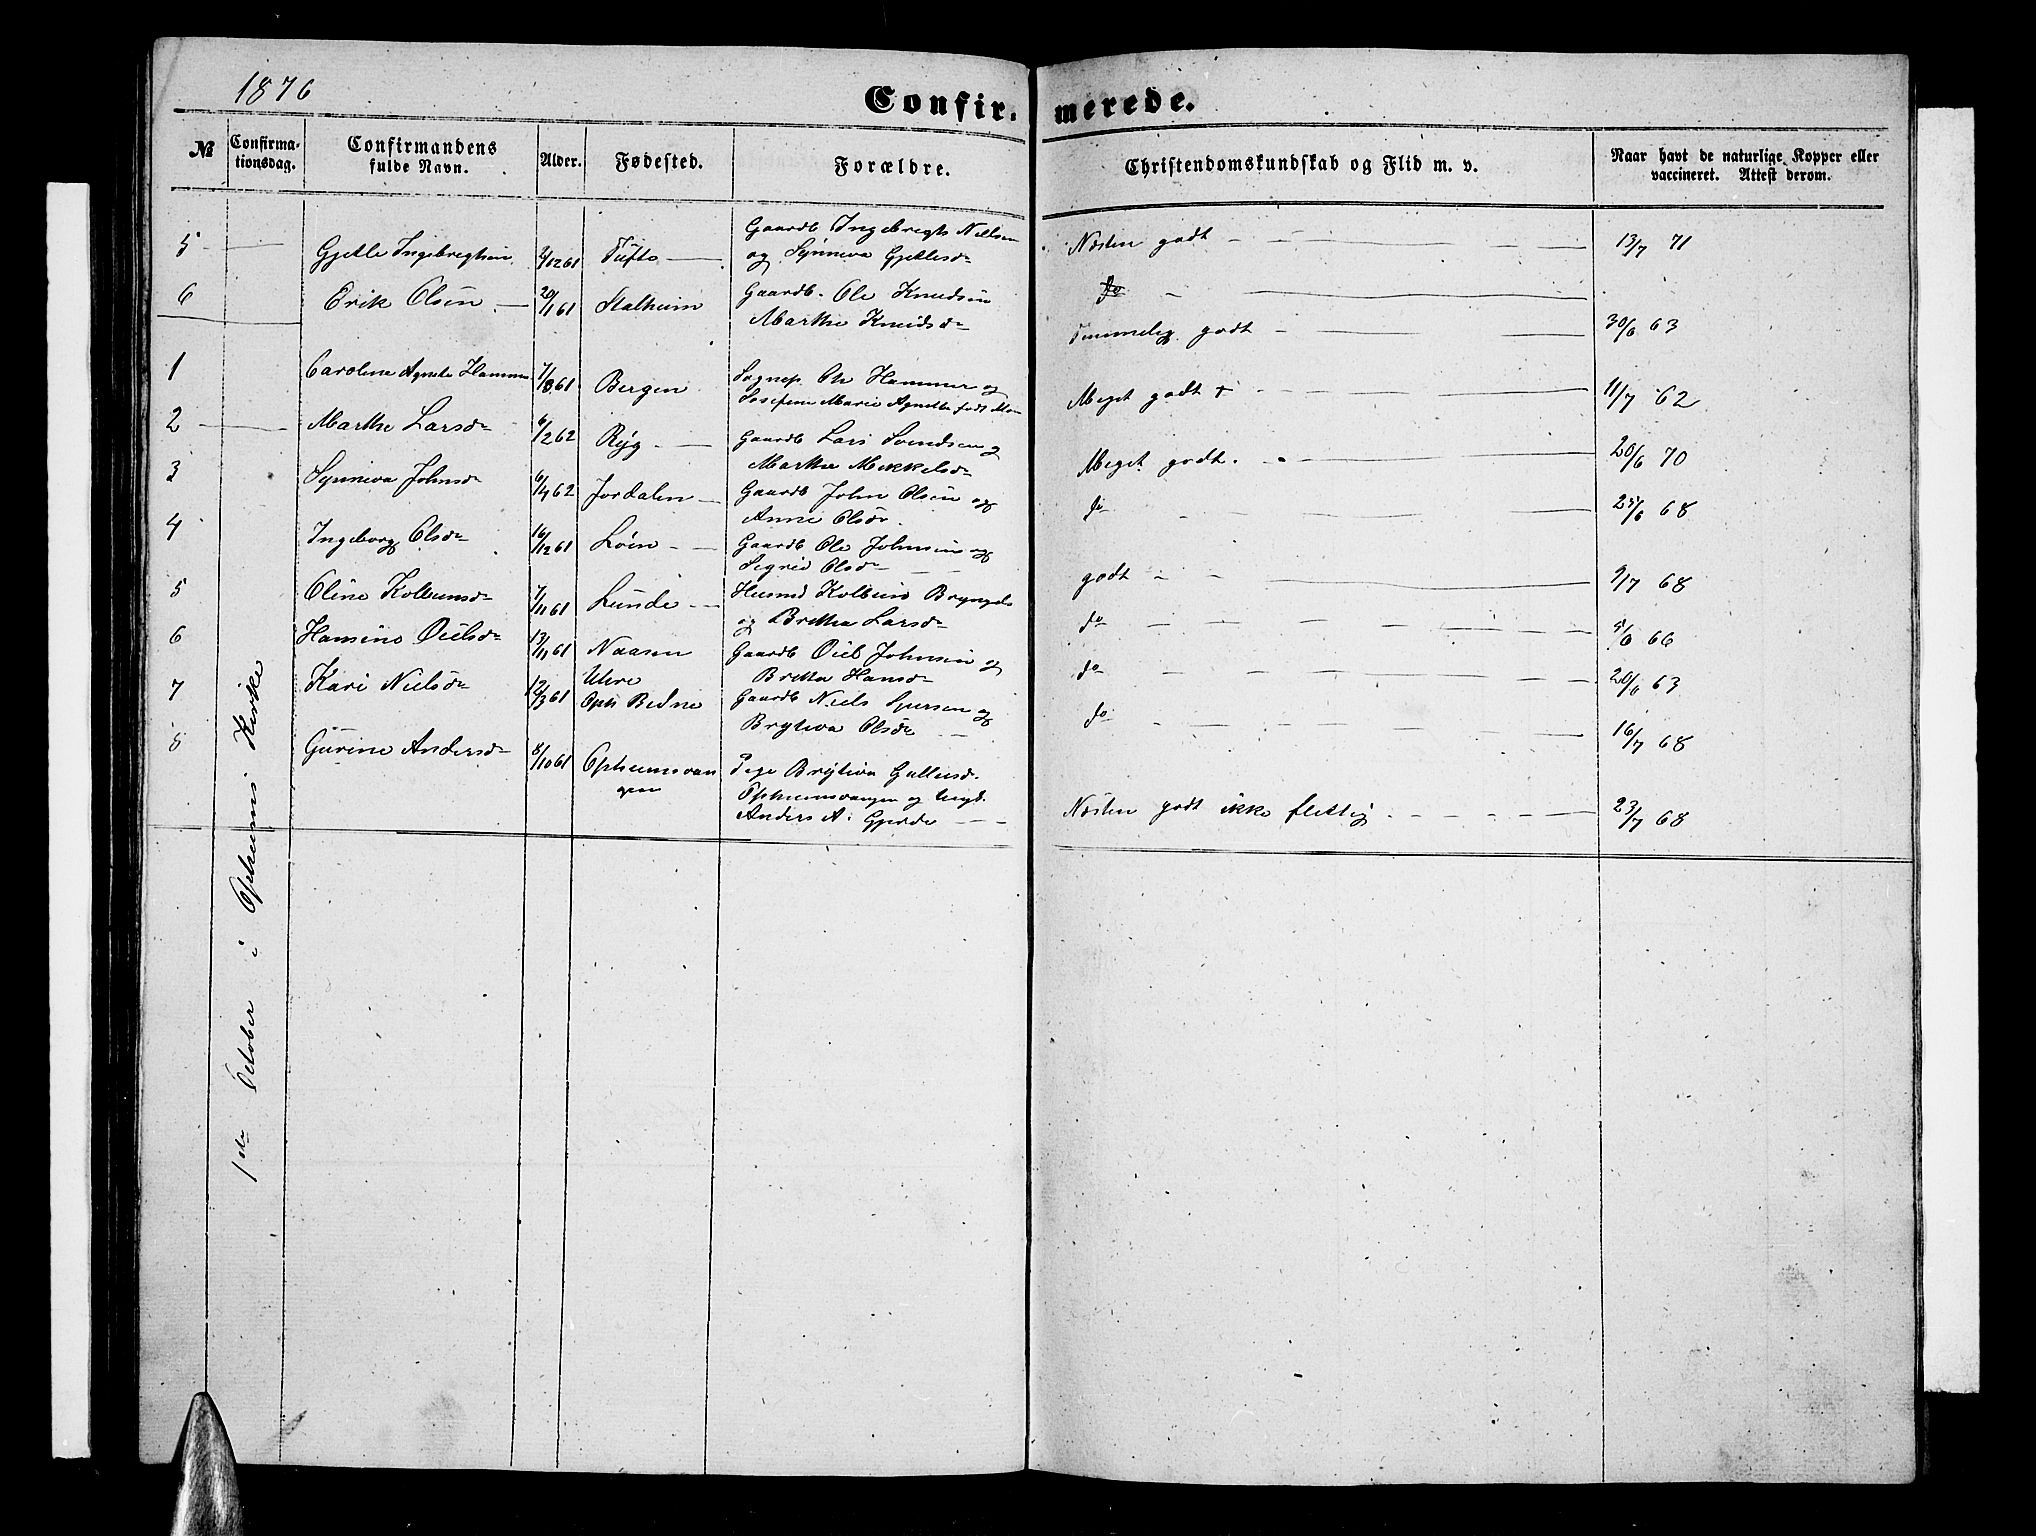 1876
Confirmerede.
№
Confirma-
tionsdag.
Confirmandens
fulde Navn.
Alder.
Fødested.
Forældre.
Christendomskundskab og Flid m. v.
Naar havt de naturlige Kopper eller
vaccineret. Attest derom.
5 Gjetle Ingebregtsen 2/12 61 Tufte Gaardb Ingebregt Nielsen
og Synneva Gjetlesdr Næsten godt 13/7 71
6 Erik Olsen 20/1 61 Stalheim Gaardb. Ole Knudsen do
Marthe Knudsdr Temmelig godt 30/6 63
1 Caroline Agnete Hammer 7/8 61 Bergen Sognep. Chr Hammer og
Josefine Marie Agnethe født Meget godt + 11/7 62
2 Marthe Larsdr 6/2 62 Ryg Gaardb Lars Svendsen og
Marthe Mikkelsdr Meget godt. 20/6 70
3 Synneva Johnsdr 6/4 62 Jordalen Gaardb John Olsen og
Anne Olsdr. do 25/6 68
4 Ingeborg Olsdr 16/12 61 Løen Gaardb Ole Johnsen og
Sigrid Olsdr godt 9/7 68
5 Oline Kolbensdr 7/11 61 Lunde Husmd Kolbein Bryngels
og Brithe Larsdr do 5/6 66
6 Hansine Odelsdr 13/11 61 Naasen Gaardb Odel Johnsen og
Britha Hansdr do 20/6 63
7 Kari Nielsdr 12/3 61 Uhre
Oph Bedne Gaardb Niels Sjursen og
Bryteva Olsdr do 16/7 68
8 Gurine Andersdr 8/10 61 Opheimsvan
gen Pige Bryteva Gullesdr.
Opheimsvangen og Ungk.
Anders A. Gjerde Næsten godt ikke flittig 23/7 68
1ste October i Opheims Kirke